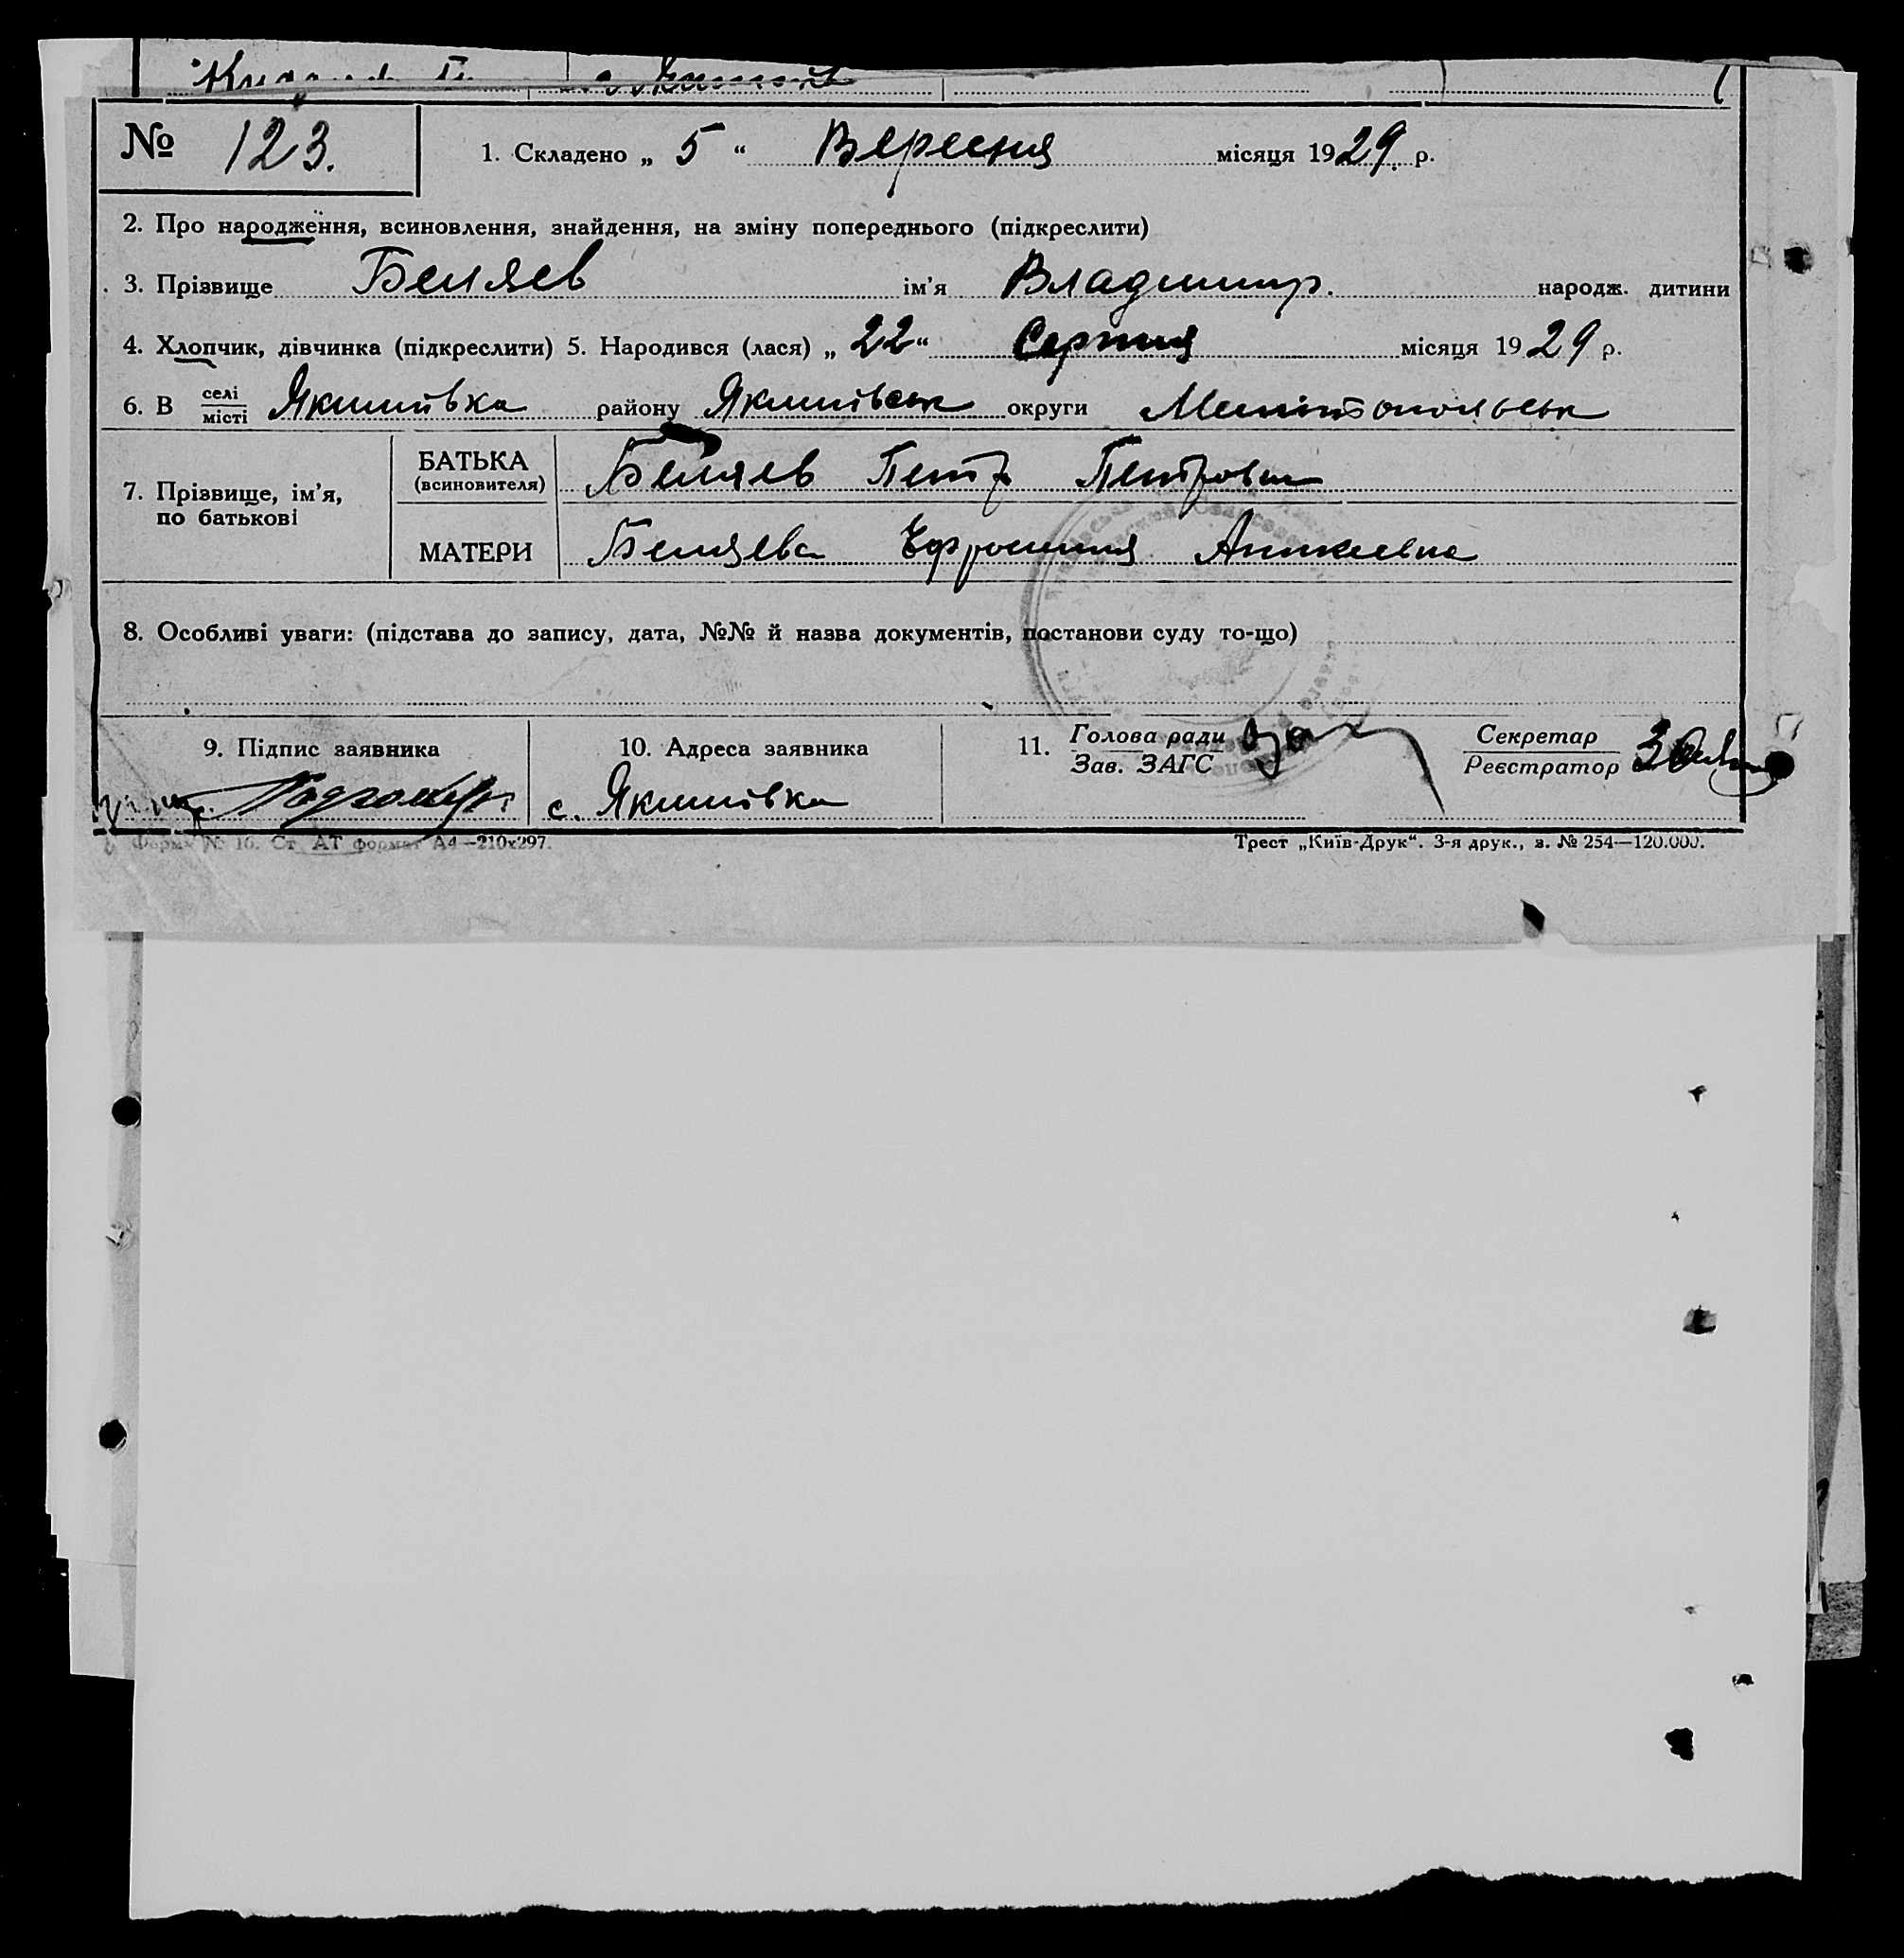 № 123.
1. Складено „ 5 “ Вересня місяця 1929. р.
2. Про народження, всиновлення, знайдення, на зміну попереднього (підкреслити)
3. Прізвище Беляев ім’я Владимир. народж. дитини
4. Хлопчик, дівчинка (підкреслити) 5. Народився (лася) „ 22 “ Серпня місяця 1929 р.
6. В селі місті Якимівка району Якимівськ округи Мелітопольськ
7. Прізвище, ім’я, по батькові
БАТЬКА (всиновителя) Беляев Петр Петрович
МАТЕРИ Беляева Ефросиния Аникеевна
8. Особливі уваги: (підстава до запису, дата, №№ й назва документів, постанови суду то-що)
9. Підпис заявника
10. Адреса заявника
11. Голова ради Зав. ЗАГС
Секретар Реєстратор
с. Якимівка
Форма № 16. Ст АТ формат А4—210х297.
Трест „Київ-Друк“. 3-я друк., з. № 254—120.000.